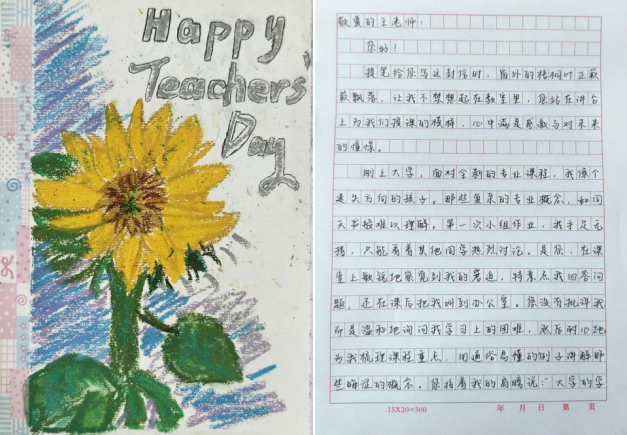 Happy
Teachers
Day
敬爱的王老师：
您好！
提笔给您写这封信时，窗外的梧桐叶正簌
簌飘落，让我不禁想起在教室里，您站在讲台
上为我们授课的模样，心中满是感激与对未来
的憧憬。
刚上大学，面对全新的专业课程，我像个
迷失方向的孩子。那些复杂的专业概念，如同
天书般难以理解。第一次小组作业，我手足无
措，只能看着其他同学热烈讨论。是您，在课
堂上敏锐地察觉到我的窘迫，特意点我回答问
题，还在课后把我叫到办公室。您没有批评我，
而是温和地询问我学习上的困难，然后耐心地
为我梳理课程重点，用通俗易懂的例子讲解那
些晦涩的概念。您拍着我的肩膀说：“大学的学
15X20=300 年 月 日 第 页